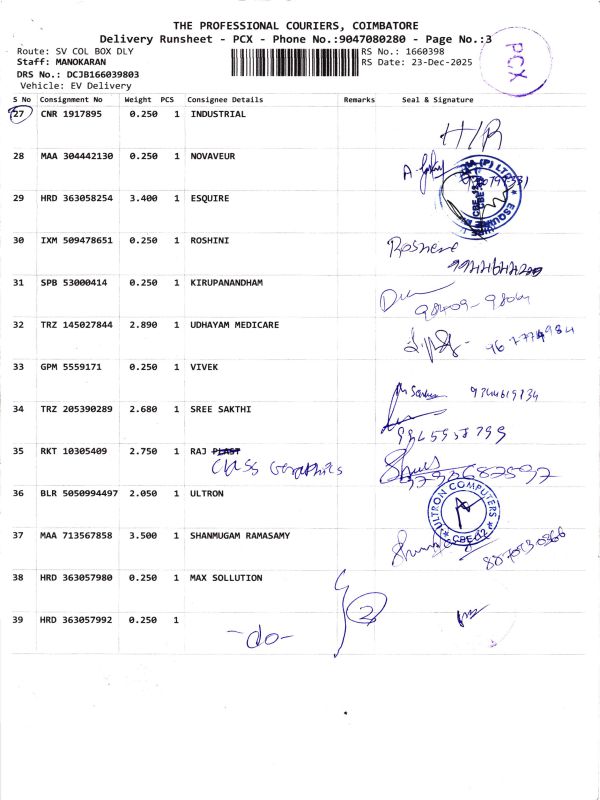 THE PROFESSIONAL COURIERS, COIMBATORE
Delivery Runsheet - PCX - Phone No.:9047080280 - Page No.:3
Route: SV COL BOX DLY RS No.: 1660398
Staff: MANOKARAN RS Date: 23-Dec-2025
DRS No.: DCJB166039803
Vehicle: EV Delivery
PCX
S No Consignment No Weight PCS Consignee Details Remarks Seal & Signature
27 CNR 1917895 0.250 1 INDUSTRIAL
H/R
28 MAA 304442130 0.250 1 NOVAVEUR
29 HRD 363058254 3.400 1 ESQUIRE
ESQUIRE
30 IXM 509478651 0.250 1 ROSHINI
31 SPB 53000414 0.250 1 KIRUPANANDHAM
98409-
32 TRZ 145027844 2.890 1 UDHAYAM MEDICARE
33 GPM 5559171 0.250 1 VIVEK
9344619834
34 TRZ 205390289 2.680 1 SREE SAKTHI
35 RKT 10305409 2.750 1 RAJ PLAST
Graphics
36 BLR 5050994497 2.050 1 ULTRON
ULTRON COMPUTERS
CBE-12
37 MAA 713567858 3.500 1 SHANMUGAM RAMASAMY
38 HRD 363057980 0.250 1 MAX SOLLUTION
2
39 HRD 363057992 0.250 1
-do-